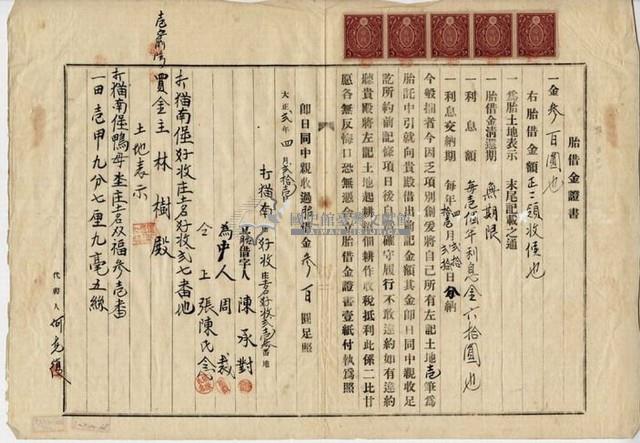 胎借金證書
一金參百圓也
右胎借金額正ニ領收候也
一為胎土地表示 末尾記載之通
一胎借金清還期 無期限
一利息金額 每壹個年利息金六拾圓也
一利息交納期 每年
今般拙者今因乏項別創爰將自己所有左記土地壹筆為
胎託中引就向貴殿借出前記金額其金即日同中親收足
訖所約前記條項日後當確守履行不敢違約如有違約
聽貴殿將左記土地起耕招佃耕作收稅抵利此係二比甘
愿各無反悔口恐無憑今欲有憑立胎借金證書壹紙付執為照
即日同中親收過胎借金參百圓足照
大正貳年四月貳拾壹日
打猫南堡好收庄土名好收貳壹番地
胎借字人 陳承對
為中人 周裁
仝上 張陳氏
打猫南堡好收庄土名好收貳七番地
買金主 林樹 殿
土地表示
打猫南堡鴨母坔庄土名双福參壹番
一田壹甲九分七厘九毫五絲
代書人 何
國史館臺灣文獻館